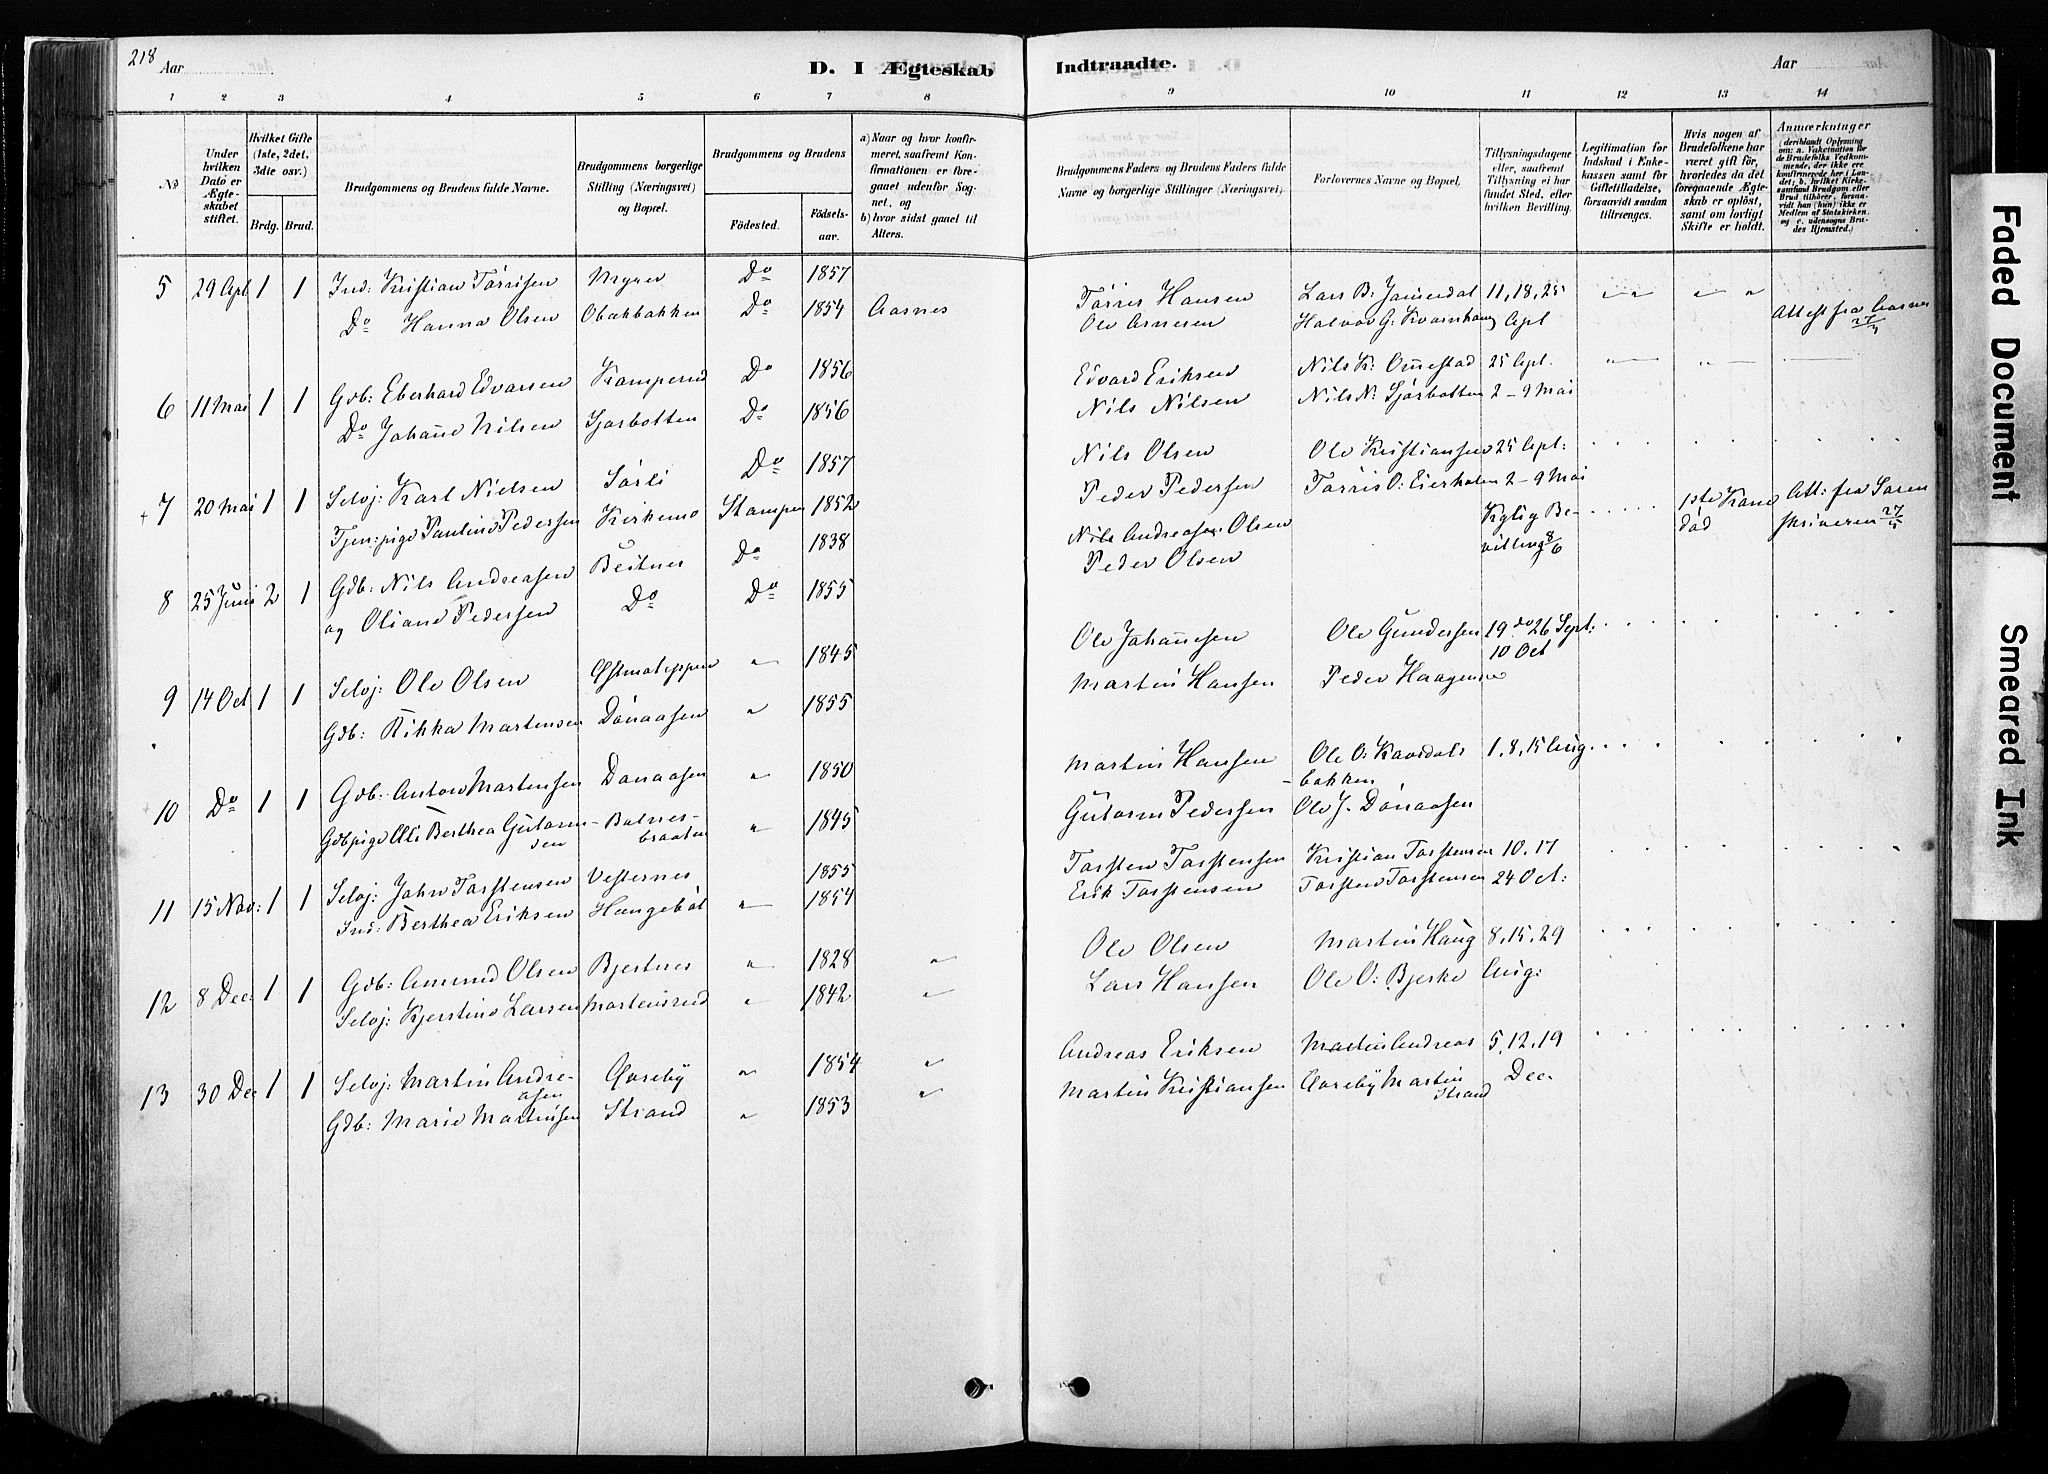 218
Aar
D. I Ægteskab
Indtraadte.
Aar
1 2 3 4 5 6 7 8 9 10 11 12 13 14
No
Under hvilken Dato er Ægteskabet stiftet.
Hvilket Gifte (1ste, 2det, 3die osv.)
Brdg. Brud.
Brudgommens og Brudens fulde Navne.
Brudgommens borgerlige Stilling (Næringsvei) og Bopæl.
Brudgommens og Brudens
Fødested.
Fødselsaar.
a) Naar og hvor konfirmeret, saafremt Konfirmationen er foregaaet udenfor Sognet, og
b) hvor sidst gaaet til Alters.
Brudgommens Faders og Brudens Faders fulde Navne og borgerlige Stillinger (Næringsvei).
Forlovernes Navne og Bopæl.
Tillysningsdagene eller, saafremt Tillysning ei har fundet Sted, efter hvilken Bevilling.
Legitimation for Indskud i Enkekassen samt for Giftetilladelse, forsaavidt saadan tiltrænges.
Hvis nogen af Brudefolkene har været gift før, hvorledes da det foregaaende Ægteskab er opløst, samt om lovligt Skifte er holdt.
Anmærkninger
(deriblandt Oplysning om: a. Vakcination for de Brudefolks Vedkommende, der ikke ere konfirmerede her i Landet; b. hvilket Kirkesamfund Brudgom eller Brud tilhører, forsaavidt han (hun) ikke er Medlem af Statskirken, og c. udensogns Brudes Hjemsted.)
5 29 Apl 1 1 Ind: Kristian Tørrisen Myrer Do 1857 Tørris Hansen Lars B. 11, 18, 25
Do Hanna Olsen Obækbakken Do 1854 Aasnes Ole Arnesen Halvor G. Kvarnhaug Apl Attest fra Aasnes 27/4
6 11 Mai 1 1 Gdb: Eberhard Edvarsen Kamperud Do 1856 Edvard Eriksen Nils K. Ommestad 25 Apl.
Do Johanne Nilsen Sjørbotten Do 1856 Nils Nilsen Nils N. Sjørbotten 2 – 9 Mai
7 20 Mai 1 1 Selvj: Karl Nielsen Sørli Do 1857 Nils Olsen Ole Kristiansen 25 Apl:
Tjen: pige Pauline Pedersen Kirkemo Stampen 1852 Peder Pedersen Tørris O: Eierholen 2 – 9 Mai
8 25 Juni 2 1 Gdb: Nils Andreasen Beitnes Do 1838 Nils Andreasen Olsen Kglig Bevilling 8/6 1ste Kone død Att: fra Sorenskriveren 27/5
og Oliane Pedersen Do Do 1855 Peder Olsen
9 14 Oct 1 1 Selvj: Ole Olsen 1845 Ole Johannesen Ole Gundersen 19 do 26 Sept: 10 Oct
Gdb: Rikka Martensen Dønaasen 1855 Martin Hansen Peder Haagensen
10 Do 1 1 Gdb: Anton Martensen Dønaasen 1850 Martin Hansen Ole O: bakken 1, 8, 15 Aug
Gdbpige Oli Berthea Gutormsen Bolnesbraaten 1845 Gutorm Pedersen Ole J. Dønaasen
11 15 Nov: 1 1 Selvj: John Torstensen Vesternes 1855 Torsten Torstensen Kristian Torstensen 10, 17
Ind: Berthea Eriksen Haugebøl 1854 Erik Torstensen Torsten Torstensen 24 Oct:
12 8 Dec 1 1 Gdb: Amund Olsen Bjestnes 1828 Ole Olsen Martin Haug 8, 15, 29
Selvj: Kjerstine Larsen Martensrud 1842 Lars Hansen Ole O: Bjerke Aug:
13 30 Dec 1 1 Selvj: Martin Andreasen Aaseby 1854 Andreas Eriksen Martin Andreas 5, 12, 19
Gdb: Marie Martinsen Strand 1853 Martin Kristiansen Aaseby Martin Strand Dec
Faded Document
Smeared Ink